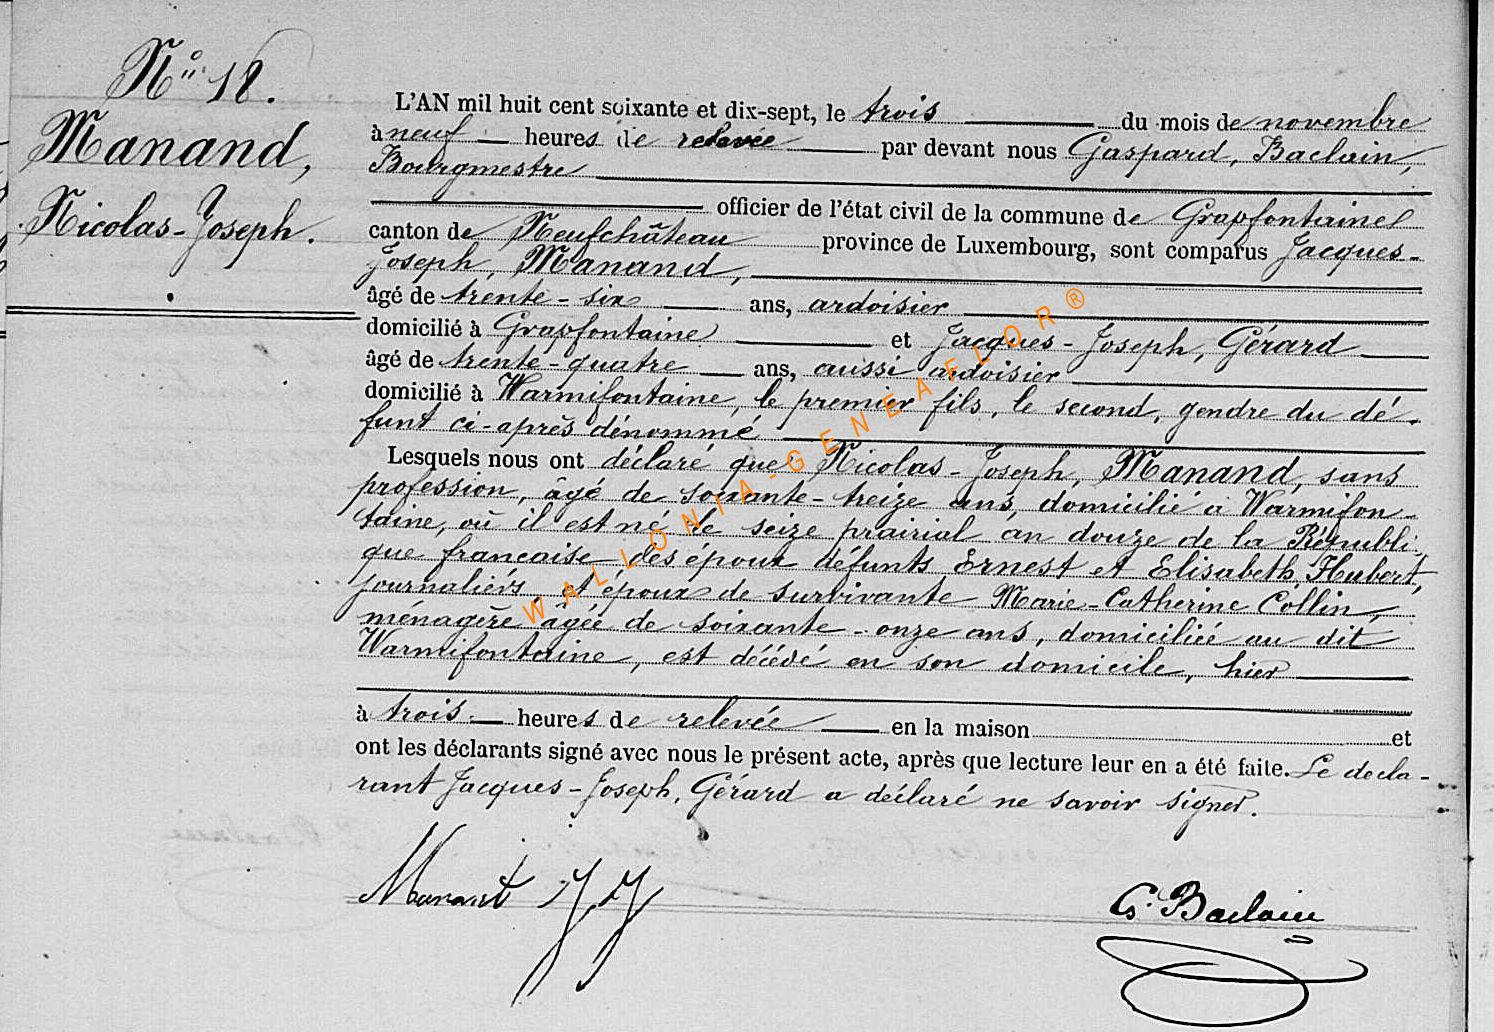 N° 18.
Manand,
Nicolas-Joseph.
L'AN mil huit cent soixante et dix-sept, le trois du mois de novembre
à neuf heures de relevée par devant nous Gaspard, Baclain,
Bourgmestre
officier de l'état civil de la commune de Grapfontaine
canton de Neufchâteau province de Luxembourg, sont comparus Jacques-
Joseph, Manand,
âgé de trente-six ans, ardoisier
domicilié à Grapfontaine et Jacques-Joseph, Gérard
âgé de trente-quatre ans, aussi ardoisier
domicilié à Warmifontaine, le premier fils, le second, gendre du dé-
funt ci-après dénommé
Lesquels nous ont déclaré que Nicolas-Joseph, Manand, sans
profession, âgé de soixante-treize ans, domicilié à Warmifon-
taine, où il est né le seize prairial an douze de la Républi-
que francaise des époux défunts Ernest et Elisabeth, Hubert,
journaliers, et époux de survivante Marie-Catherine Collin,
ménagère âgée de soixante-onze ans, domiciliée au dit
Warmifontaine, est décédé en son domicile, hier
à trois heures de relevée en la maison et
ont les déclarants signé avec nous le présent acte, après que lecture leur en a été faite. Le decla-
rant Jacques-Joseph, Gérard a déclaré ne savoir signer.
Manant J J
G. Baclain
WALLONIA-GENEAFLOR®